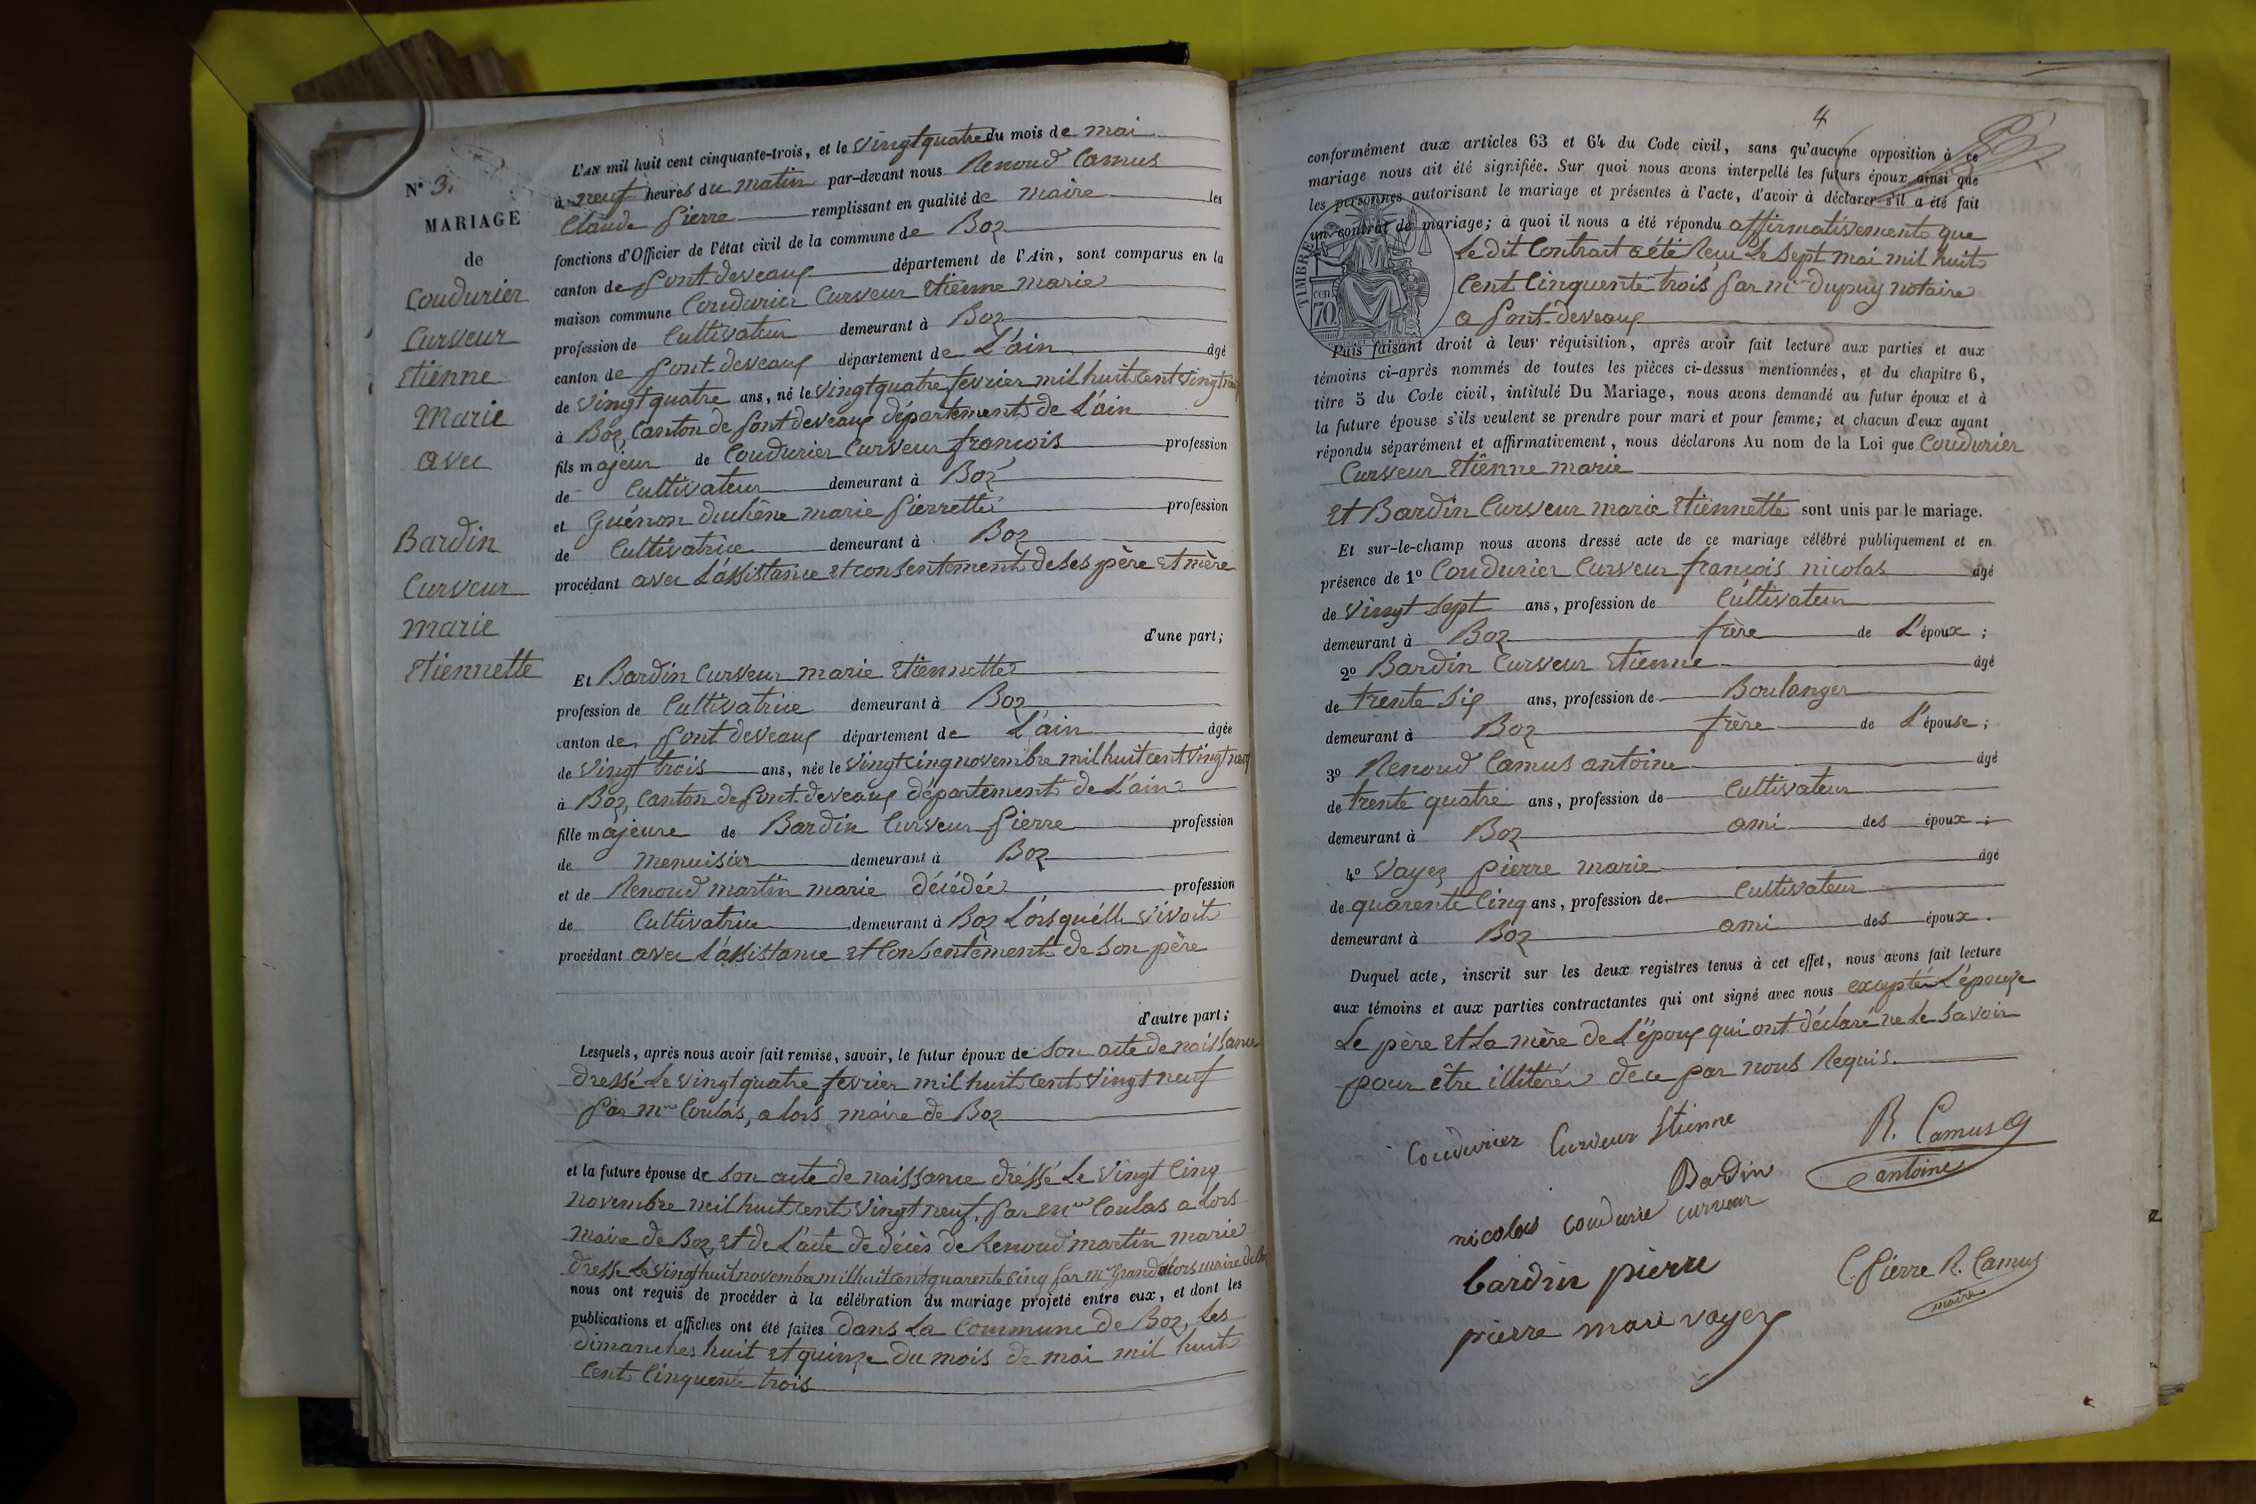 N° 3.
MARIAGE
de
Coudurier
Curveur
Etienne
Marie
avec
Bardin
Curveur
marie
Etiennette
L'AN mil huit cent cinquante-trois, et le vingt quatre du mois de mai
à neuf heures du matin par-devant nous Renoud Camus
Claude Pierre remplissant en qualité de maire les
fonctions d'Officier de l'état civil de la commune de Boz
canton de Pont deveaux département de l'Ain, sont comparus en la
maison commune Coudurier Curveur Etienne marie
profession de Cultivateur demeurant à Boz
canton de Pont deveaux département de L'ain âgé
de vingt quatre ans, né le vingt quatre fevrier mil huit cent vingt neuf
à Boz, Canton de Pont deveaux département de L'ain
fils majeur de Coudurier Curveur françois profession
de Cultivateur demeurant à Boz
et Guénon duchêne marie Pierrette profession
de Cultivatrice demeurant à Boz
procédant avec L'assistance et consentement de ses père et mère
d'une part;
Et Bardin Curveur marie Etiennette
profession de Cultivatrice demeurant à Boz
canton de Pont deveaux département de L'ain âgée
de vingt trois ans, née le vingt cinq novembre mil huit cent vingt neuf
à Boz, Canton de Pont-deveaux département de L'ain
fille majeure de Bardin Curveur Pierre profession
de menuisier demeurant à Boz
et de Renoud martin marie décédée profession
de Cultivatrice demeurant à Boz Lorsquelle vivoit
procédant avec L'assistance et Consentement de son père
d'autre part;
Lesquels, après nous avoir fait remise, savoir, le futur époux de son acte de naissance
dressé Le vingt quatre fevrier mil huit cent vingt neuf
par mr Coulas, alors maire de Boz
et la future épouse de son acte de naissance dréssé Le vingt Cinq
novembre mil huit cent vingt neuf, par mr Coulas alors
maire de Boz, et de L'acte de décès de Renoud martin marie
dressé Le vingt huit novembre mil huit cent quarente cinq par mr Grand alors maire de Boz
nous ont requis de procéder à la célébration du mariage projeté entre eux, et dont les
publications et affiches ont été faites dans La Commune de Boz, Les
dimanches huit et quinze du mois de mai mil huit
Cent Cinquente trois
4
conformément aux articles 63 et 64 du Code civil, sans qu'aucune opposition à ce
mariage nous ait été signifiée. Sur quoi nous avons interpellé les futurs époux ainsi que
les personnes autorisant le mariage et présentes à l'acte, d'avoir à déclarer s'il a été fait
un contrat de mariage; à quoi il nous a été répondu affirmativement que
Le dit Contrat a été Reçu Le Sept mai mil huit
Cent Cinquente trois par mr dupuy notaire
a Pont-deveaux
TIMBRE
70 cen.
Puis faisant droit à leur réquisition, après avoir fait lecture aux parties et aux
témoins ci-après nommés de toutes les pièces ci-dessus mentionnées, et du chapitre 6,
titre 5 du Code civil, intitulé Du Mariage, nous avons demandé au futur époux et à
la future épouse s'ils veulent se prendre pour mari et pour femme; et chacun d'eux ayant
répondu séparément et affirmativement, nous déclarons Au nom de la Loi que Coudurier
Curveur Etienne marie
Et Bardin Curveur marie Etiennette sont unis par le mariage.
Et sur-le-champ nous avons dressé acte de ce mariage célébré publiquement et en
présence de 1° Coudurier Curveur françois nicolas âgé
de vingt sept ans, profession de Cultivateur
demeurant à Boz frère de L'époux;
2° Bardin Curveur Etienne âgé
de trente six ans, profession de Boulanger
demeurant à Boz frère de L'épouse;
3° Renoud Camus antoine âgé
de trente quatre ans, profession de Cultivateur
demeurant à Boz ami des époux;
4° Vayez pierre marie âgé
de quarente Cinq ans, profession de Cultivateur
demeurant à Boz ami des époux.
Duquel acte, inscrit sur les deux registres tenus à cet effet, nous avons fait lecture
aux témoins et aux parties contractantes qui ont signé avec nous excepté L'épouze
Le père et La mère de L'époux qui ont déclaré ne Le Savoir
pour être illitérés de ce par nous Requis.
Couduriez Curveur Etienne
R. Camus
antoine
Bardin
curveur
nicolas coudurie
bardin pierre
C. Pierre R. Camus
maire
pierre mari vayez